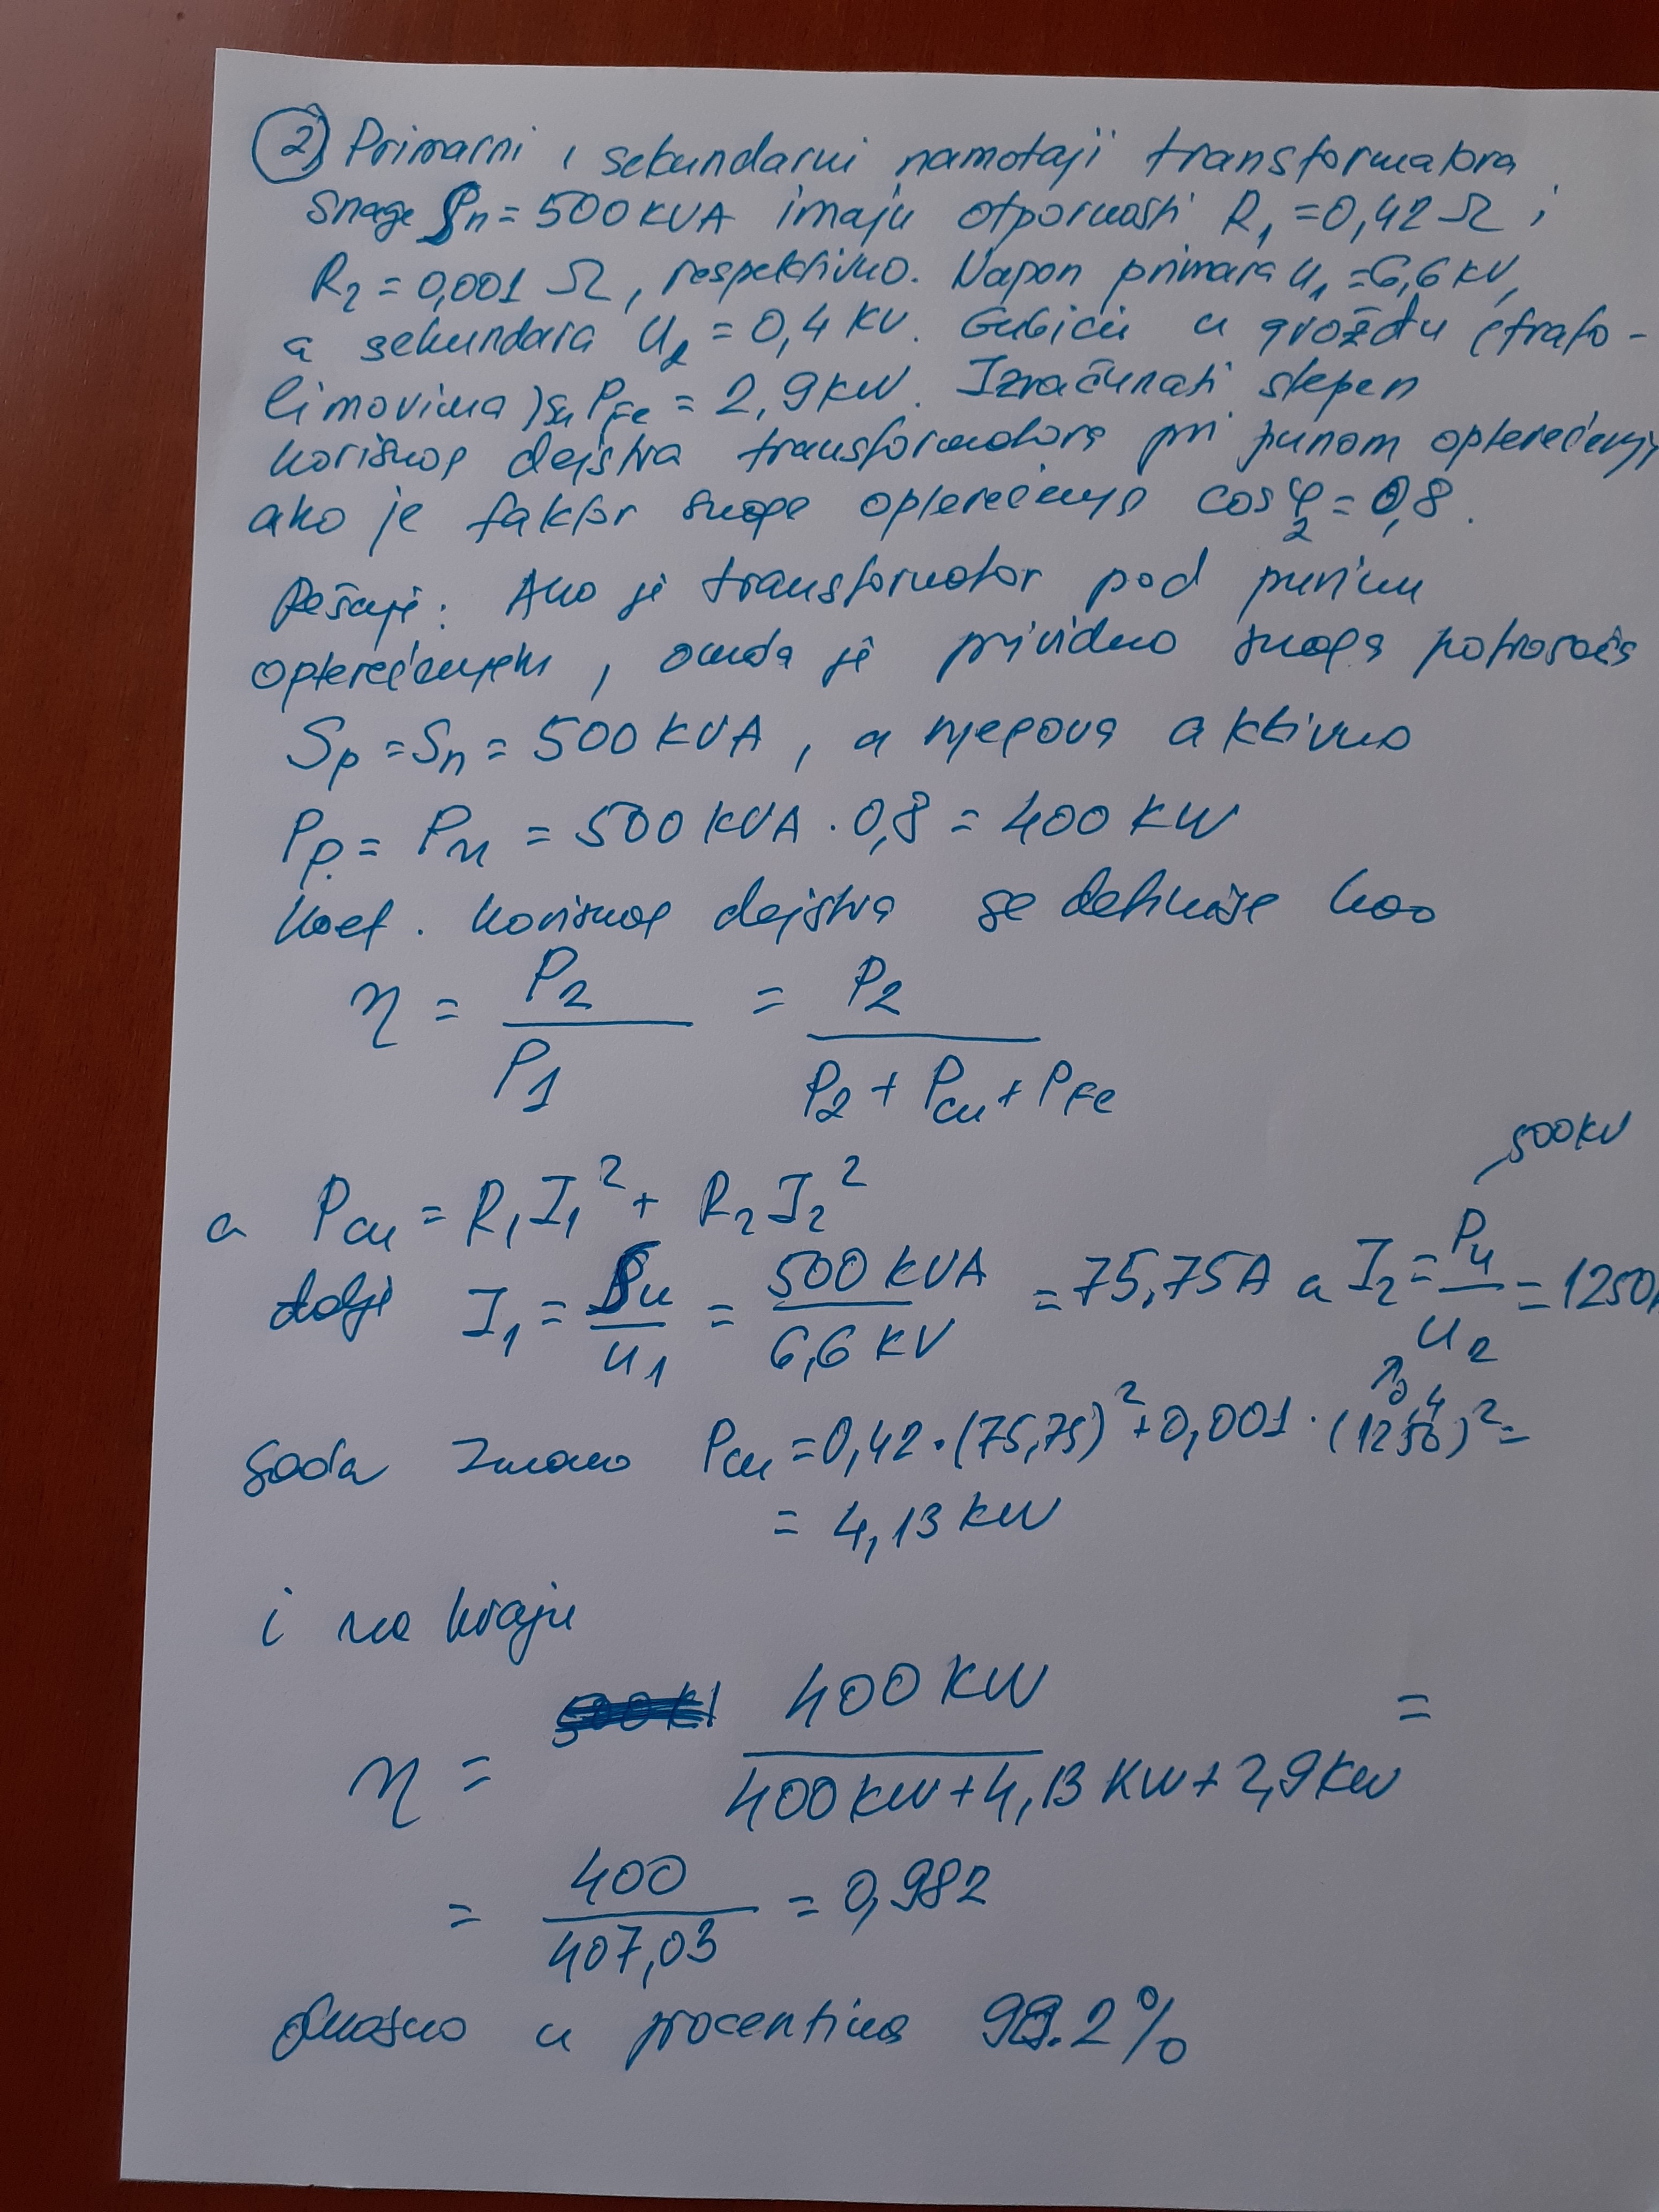 ② Primarni i sekundarni namotaji transformatora
snage Sn = 500 KVA imaju otpornosti R1 = 0,42 Ω i
R2 = 0,001 Ω, respektivno. Napon primara U1 = 6,6 KV,
a sekundara U2 = 0,4 KV. Gubici u gvožđu (trafo-
limovima) su PFe = 2,9 KW. Izračunati stepen
korisnog dejstva transformatora pri punom opterećenju
ako je faktor snage opterećenja cos φ2 = 0,8.
Rešenje: Ako je transformator pod punim
opterećenjem, onda je prividna snaga potrošača
Sp = Sn = 500 KVA, a njegova aktivna
Pp = Pn = 500 KVA · 0,8 = 400 KW
Koef. korisnog dejstva se definiše kao
η = P2 / P1 = P2 / (P2 + Pcu + PFe)
500 KV
a Pcu = R1 I1² + R2 I2²
dalje I1 = Sn / U1 = 500 KVA / 6,6 KV = 75,75 A a I2 = Pn / U2 = 1250A
0,4
sada imamo Pcu = 0,42 · (75,75)² + 0,001 · (1250)² =
= 4,13 KW
i na kraju
η = 400 KW / (400 KW + 4,13 KW + 2,9 KW) =
= 400 / 407,03 = 0,982
odnosno u procentima 98.2%